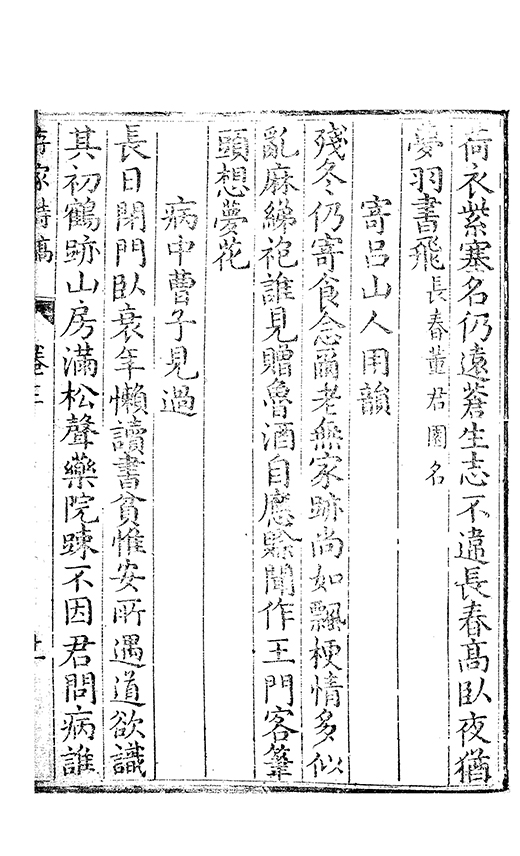 荷衣紫塞名仍遠蒼生志不違長春高臥夜猶
夢羽書飛長春董君園名
寄呂山人用韻
殘冬仍寄食念爾老無家跡尚如飄梗情多似
亂麻綈袍誰見贈魯酒自應賒聞作王門客筆
頭想夢花
病中曹子見過
長日閉門臥衰年懶讀書貧惟安所遇道欲識
其初鶴跡山房滿松聲藥院疎不因君問病誰
卷三